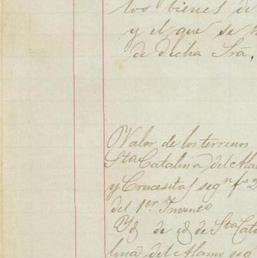 los bienes de
y el que se
de dicha Sra,
Valor de los terrenos
Sta Catalina del Alamo
y Crucesitas seg.n fs 2
del 1er Inven
de id de Sta Cata
lina del Alamo seg